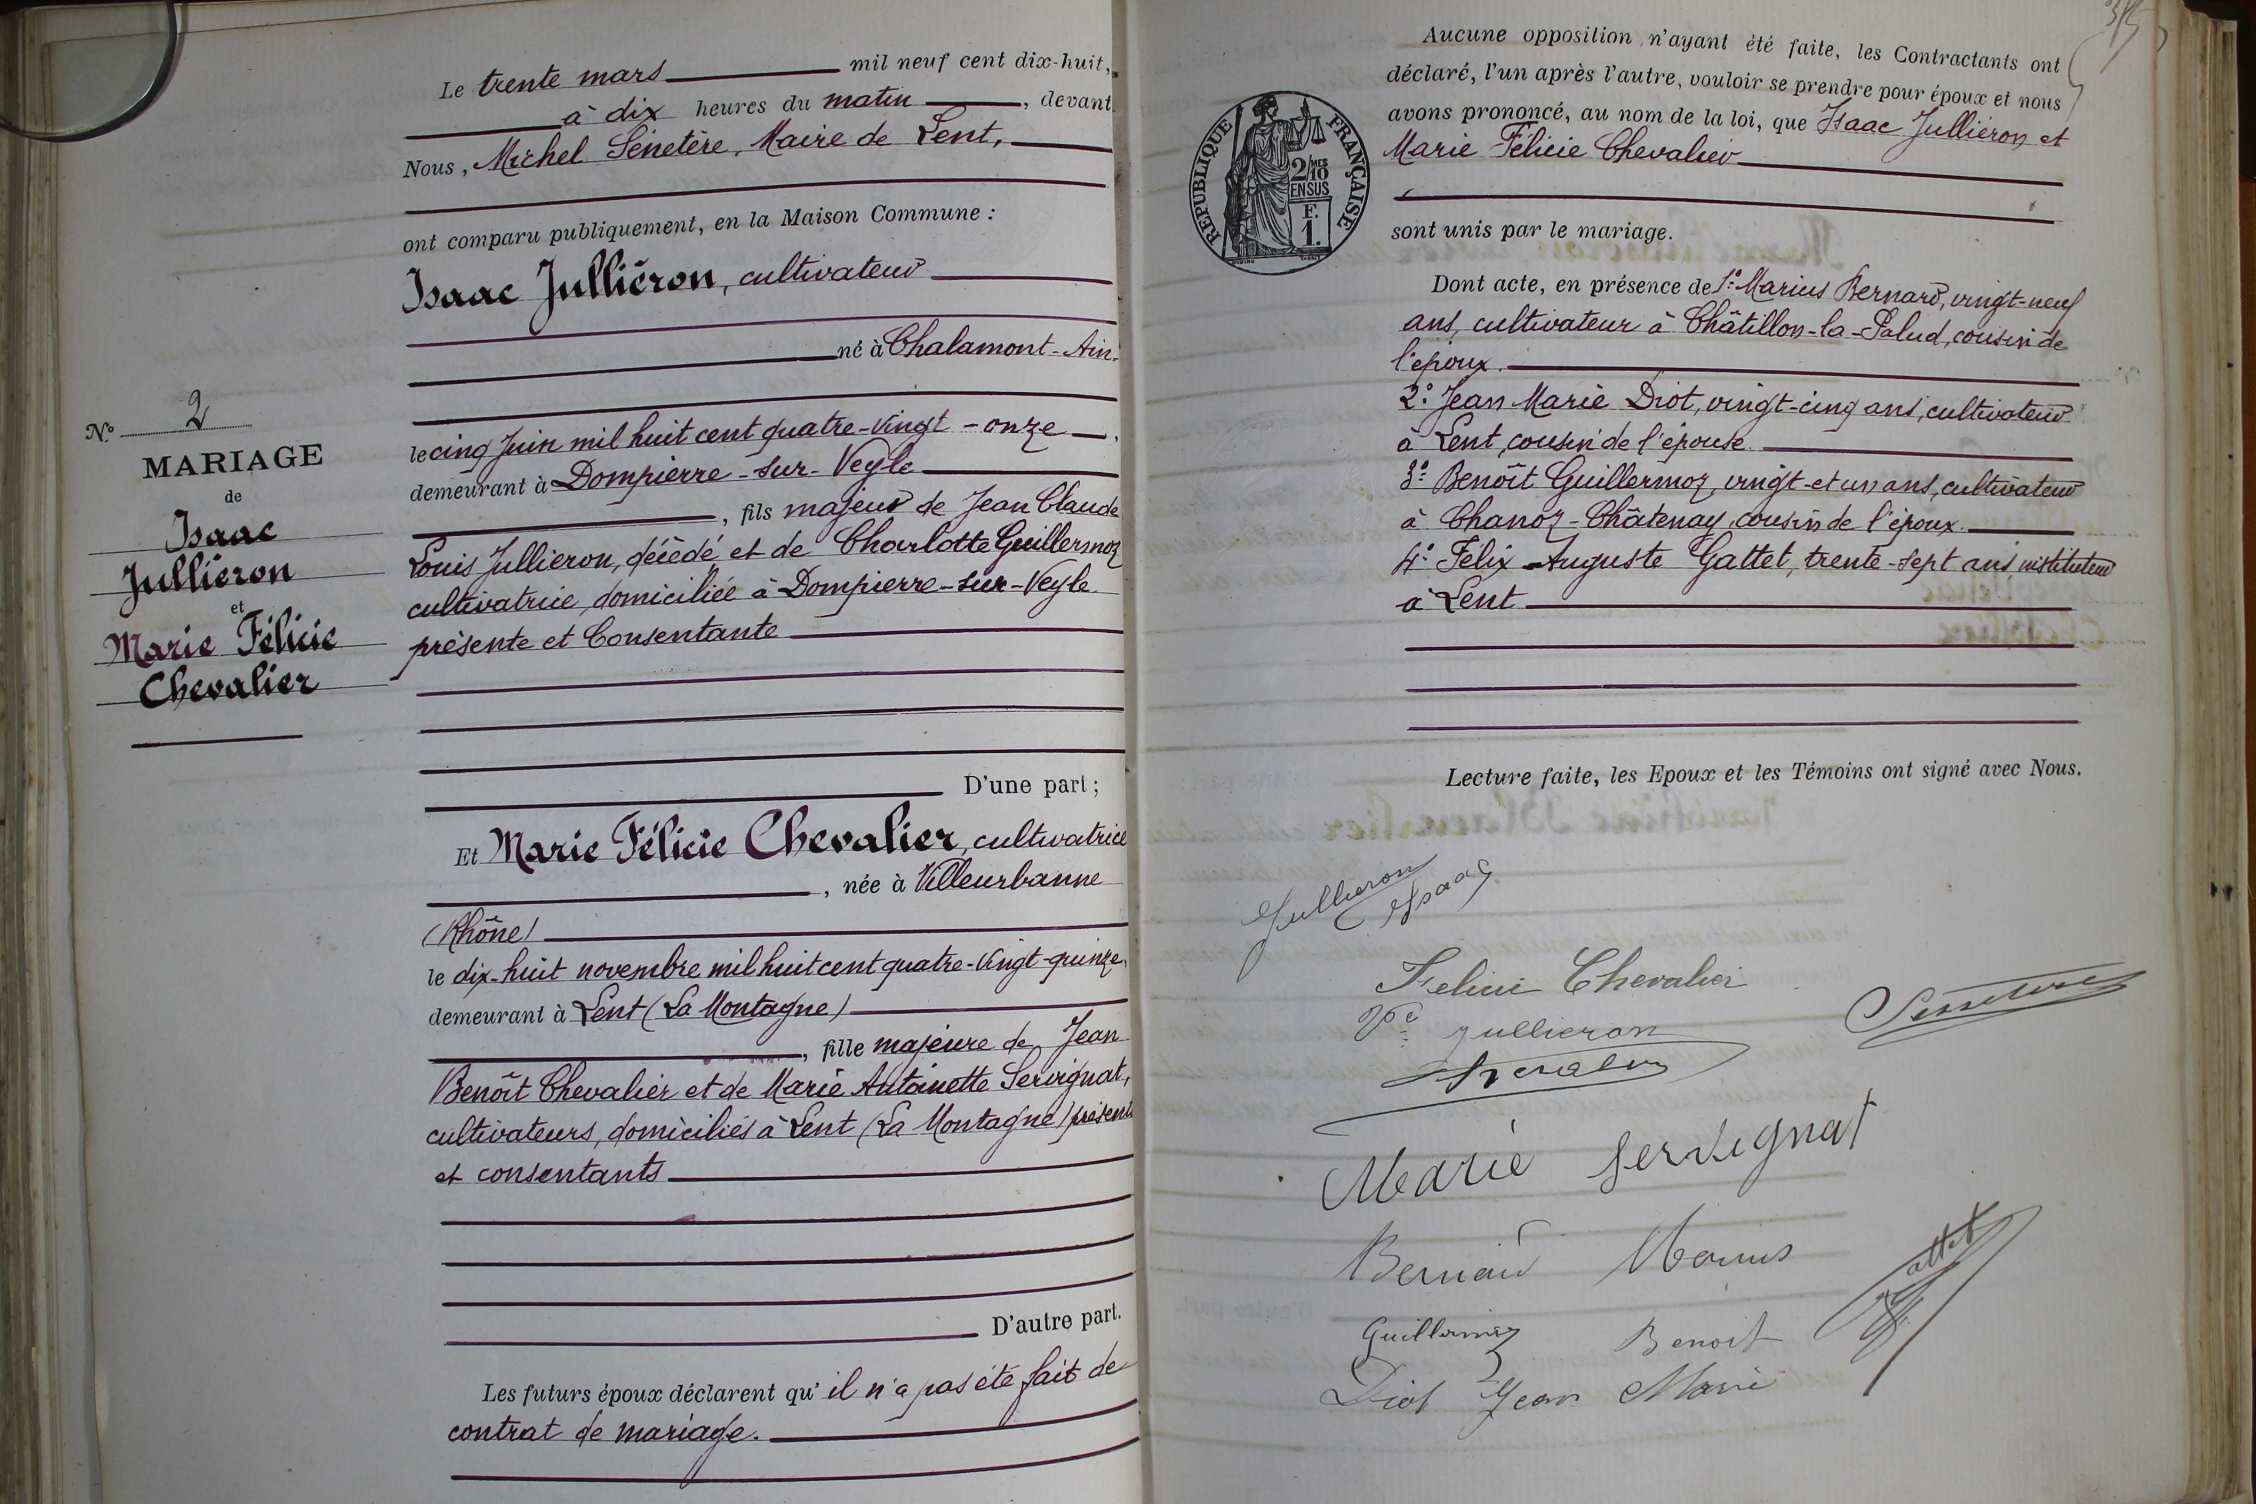 Le trente mars mil neuf cent dix-huit,
à dix heures du matin, devant
Nous, Michel Sénetère, Maire de Lent,
ont comparu publiquement, en la Maison Commune :
Isaac Julliéron, cultivateur
né à Chalamont-Ain-
le cinq Juin mil huit cent quatre-vingt-onze,
demeurant à Dompierre-sur-Veyle
, fils majeur de Jean Claude
Louis Jullieron, décédé et de Charlotte Guillermoz
cultivatrice, domiciliée à Dompierre-sur-Veyle
présente et Consentante
D'une part ;
N° 2
MARIAGE
de
Isaac
Julliéron
et
Marie Félicie
Chevalier
Et Marie Félicie Chevalier, cultivatrice
, née à Villeurbanne
(Rhône)
le dix-huit novembre mil huit cent quatre-vingt-quinze,
demeurant à Lent (La Montagne)
, fille majeure de Jean
Benoît Chevalier et de Marie Antoinette Servignat,
cultivateurs, domiciliés à Lent (La Montagne) présents
et consentants
D'autre part.
Les futurs époux déclarent qu'il n'a pas été fait de
contrat de mariage.
Aucune opposition n'ayant été faite, les Contractants ont
déclaré, l'un après l'autre, vouloir se prendre pour époux et nous
avons prononcé, au nom de la loi, que Isaac Julliéron et
Marie Félicie Chevalier
sont unis par le mariage.
REPUBLIQUE FRANÇAISE
2/10 MES
EN SUS
F.
1.
Dont acte, en présence de 1° Marius Bernard, vingt-neuf
ans, cultivateur à Châtillon-la-Palud, cousin de
l'époux.
2° Jean Marie Diot, vingt-cinq ans, cultivateur
à Lent, cousin de l'épouse
3° Benoît Guillermoz, vingt-et-un ans, cultivateur
à Chanoz-Châtenay, cousin de l'époux.
4° Félix-Auguste Gattet, trente-sept ans, instituteur
à Lent
Lecture faite, les Epoux et les Témoins ont signé avec Nous.
Jullieron Isaac
Felicie Chevalier
Vve Jullieron
Senetere
Chevalier
Marie Servignat
Bernard Marius
Gattet
Guillermoz Benoit
Diot Jean Marie